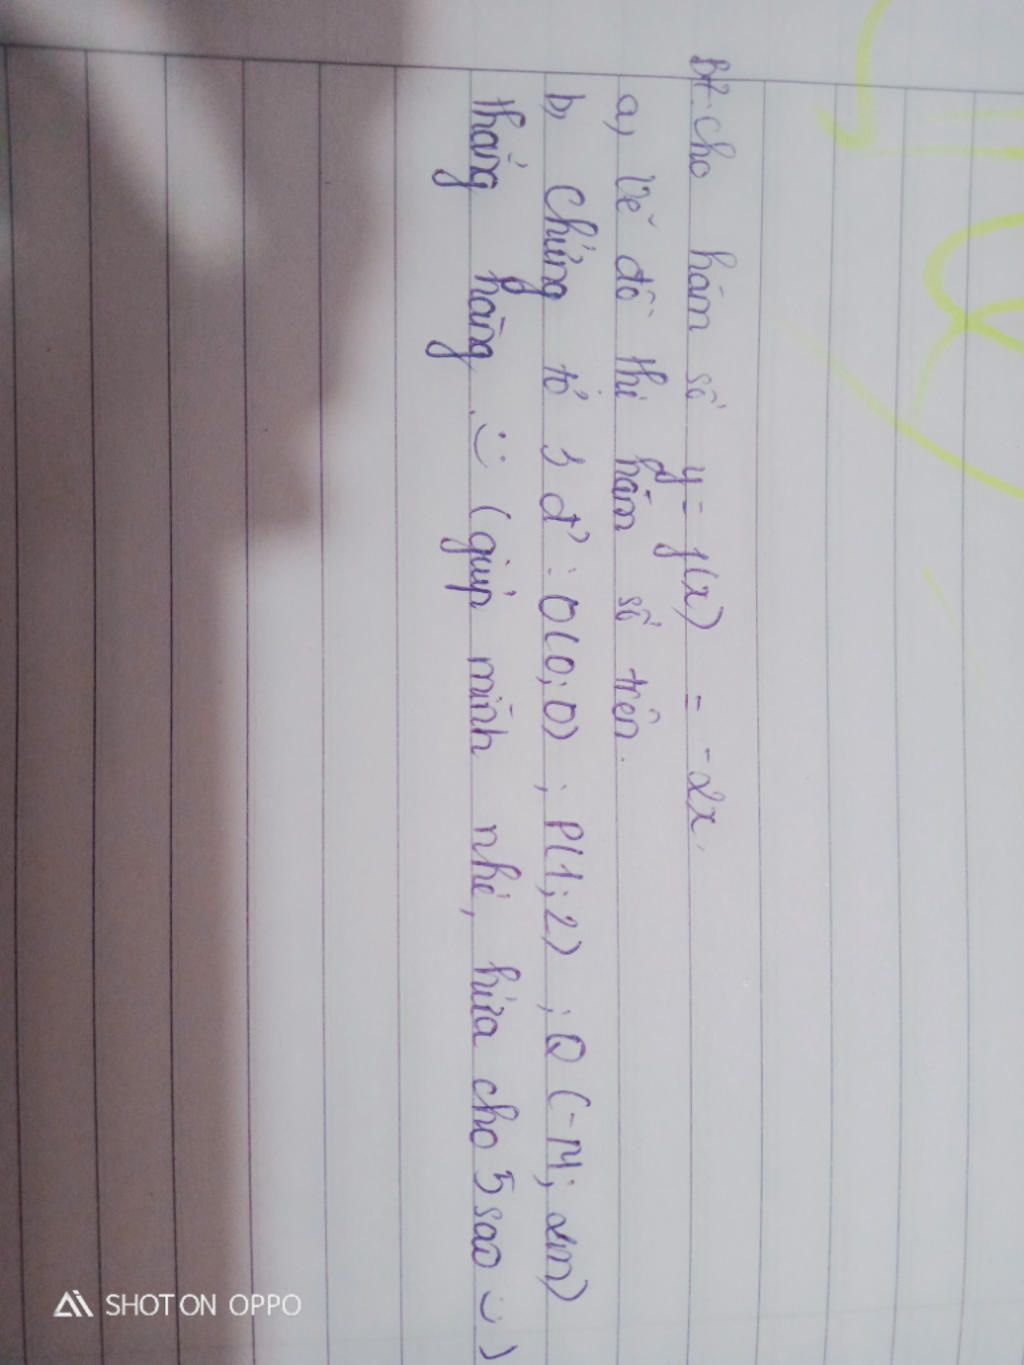 Bt: cho hám số y = f(x) = -2x.
a, Vẽ đồ thị hàm số trên.
b, Chứng tỏ 3 đ': O(0; 0) ; P(1; 2) ; Q (-M; 2m)
thẳng hàng. :) (giúp mình nhé, hứa cho 5 sao :) )
SHOT ON OPPO